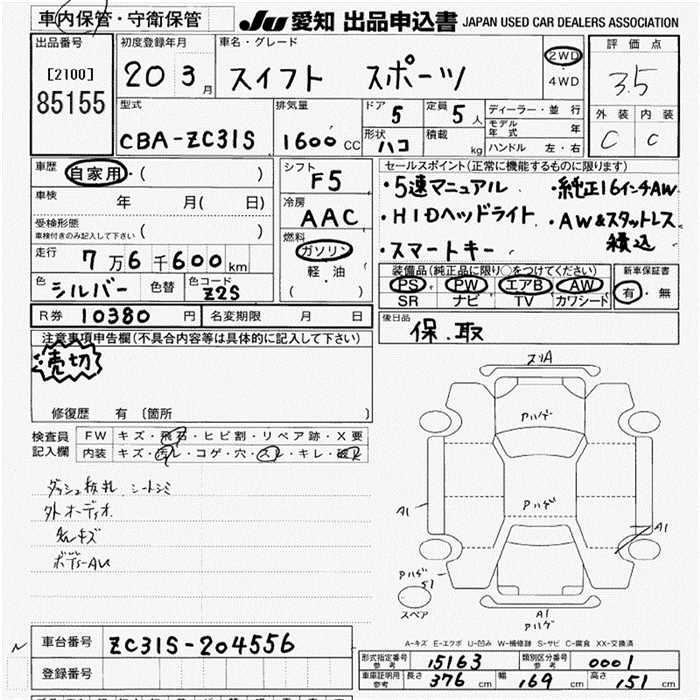 車内保管・守衛保管 JU 愛知 出品申込書 JAPAN USED CAR DEALERS ASSOCIATION
出品番号
[2100]
85155
初度登録年月
20 3月
車名・グレード
スイフト スポーツ
2WD
4WD
評価点
3.5
外装 内装
C C
型式
CBA-ZC31S
排気量
1600CC
ドア
5
定員
5人
形状
ハコ
積載
kg
ディーラー・並行
モデル年式 年
ハンドル 左・右
車歴
自家用・( )
車検 年 月( 日)
受検形態
車検付きのみ記入して下さい ( )
走行
7万6千600km
色
シルバー
色替
色コード
Z2S
シフト
F5
冷房
AAC
燃料
ガソリン
軽・油
( )
セールスポイント(正常に機能するものに限ります)
・5速マニュアル ・純正16インチAW
・HIDヘッドライト ・AW&スタットレス
積込
・スマートキー
装備品(純正品に限り○をつけてください)
PS PW エアB AW
SR ナビ TV カワシート
新車保証書
有・無
R券 10380円 名変期限 月 日
後日品
保.取
注意事項申告欄(不具合内容等は具体的に記入して下さい)
売切
修復歴 有 〔箇所 〕
検査員
記入欄
FW キズ・飛石・ヒビ割・リペア跡・X要
内装 キズ・汚レ・コゲ・穴・スレ・キレ・破レ
ダッシュ板札 シートシミ
外オーディオ
ボディーAU
スリA
アハゲ
アハゲ
A1
A1
アハゲ
S1
スペア
A1
アハゲ
A-キズ E-エクボ U-凹み W-補修跡 S-サビ C-腐食 XX-交換済
車台番号 ZC31S-204556
登録番号
形式指定番号
参考
15163
類別区分番号
参考
0001
車庫証明用
参考
長さ 376cm 幅 169cm 高さ 151cm